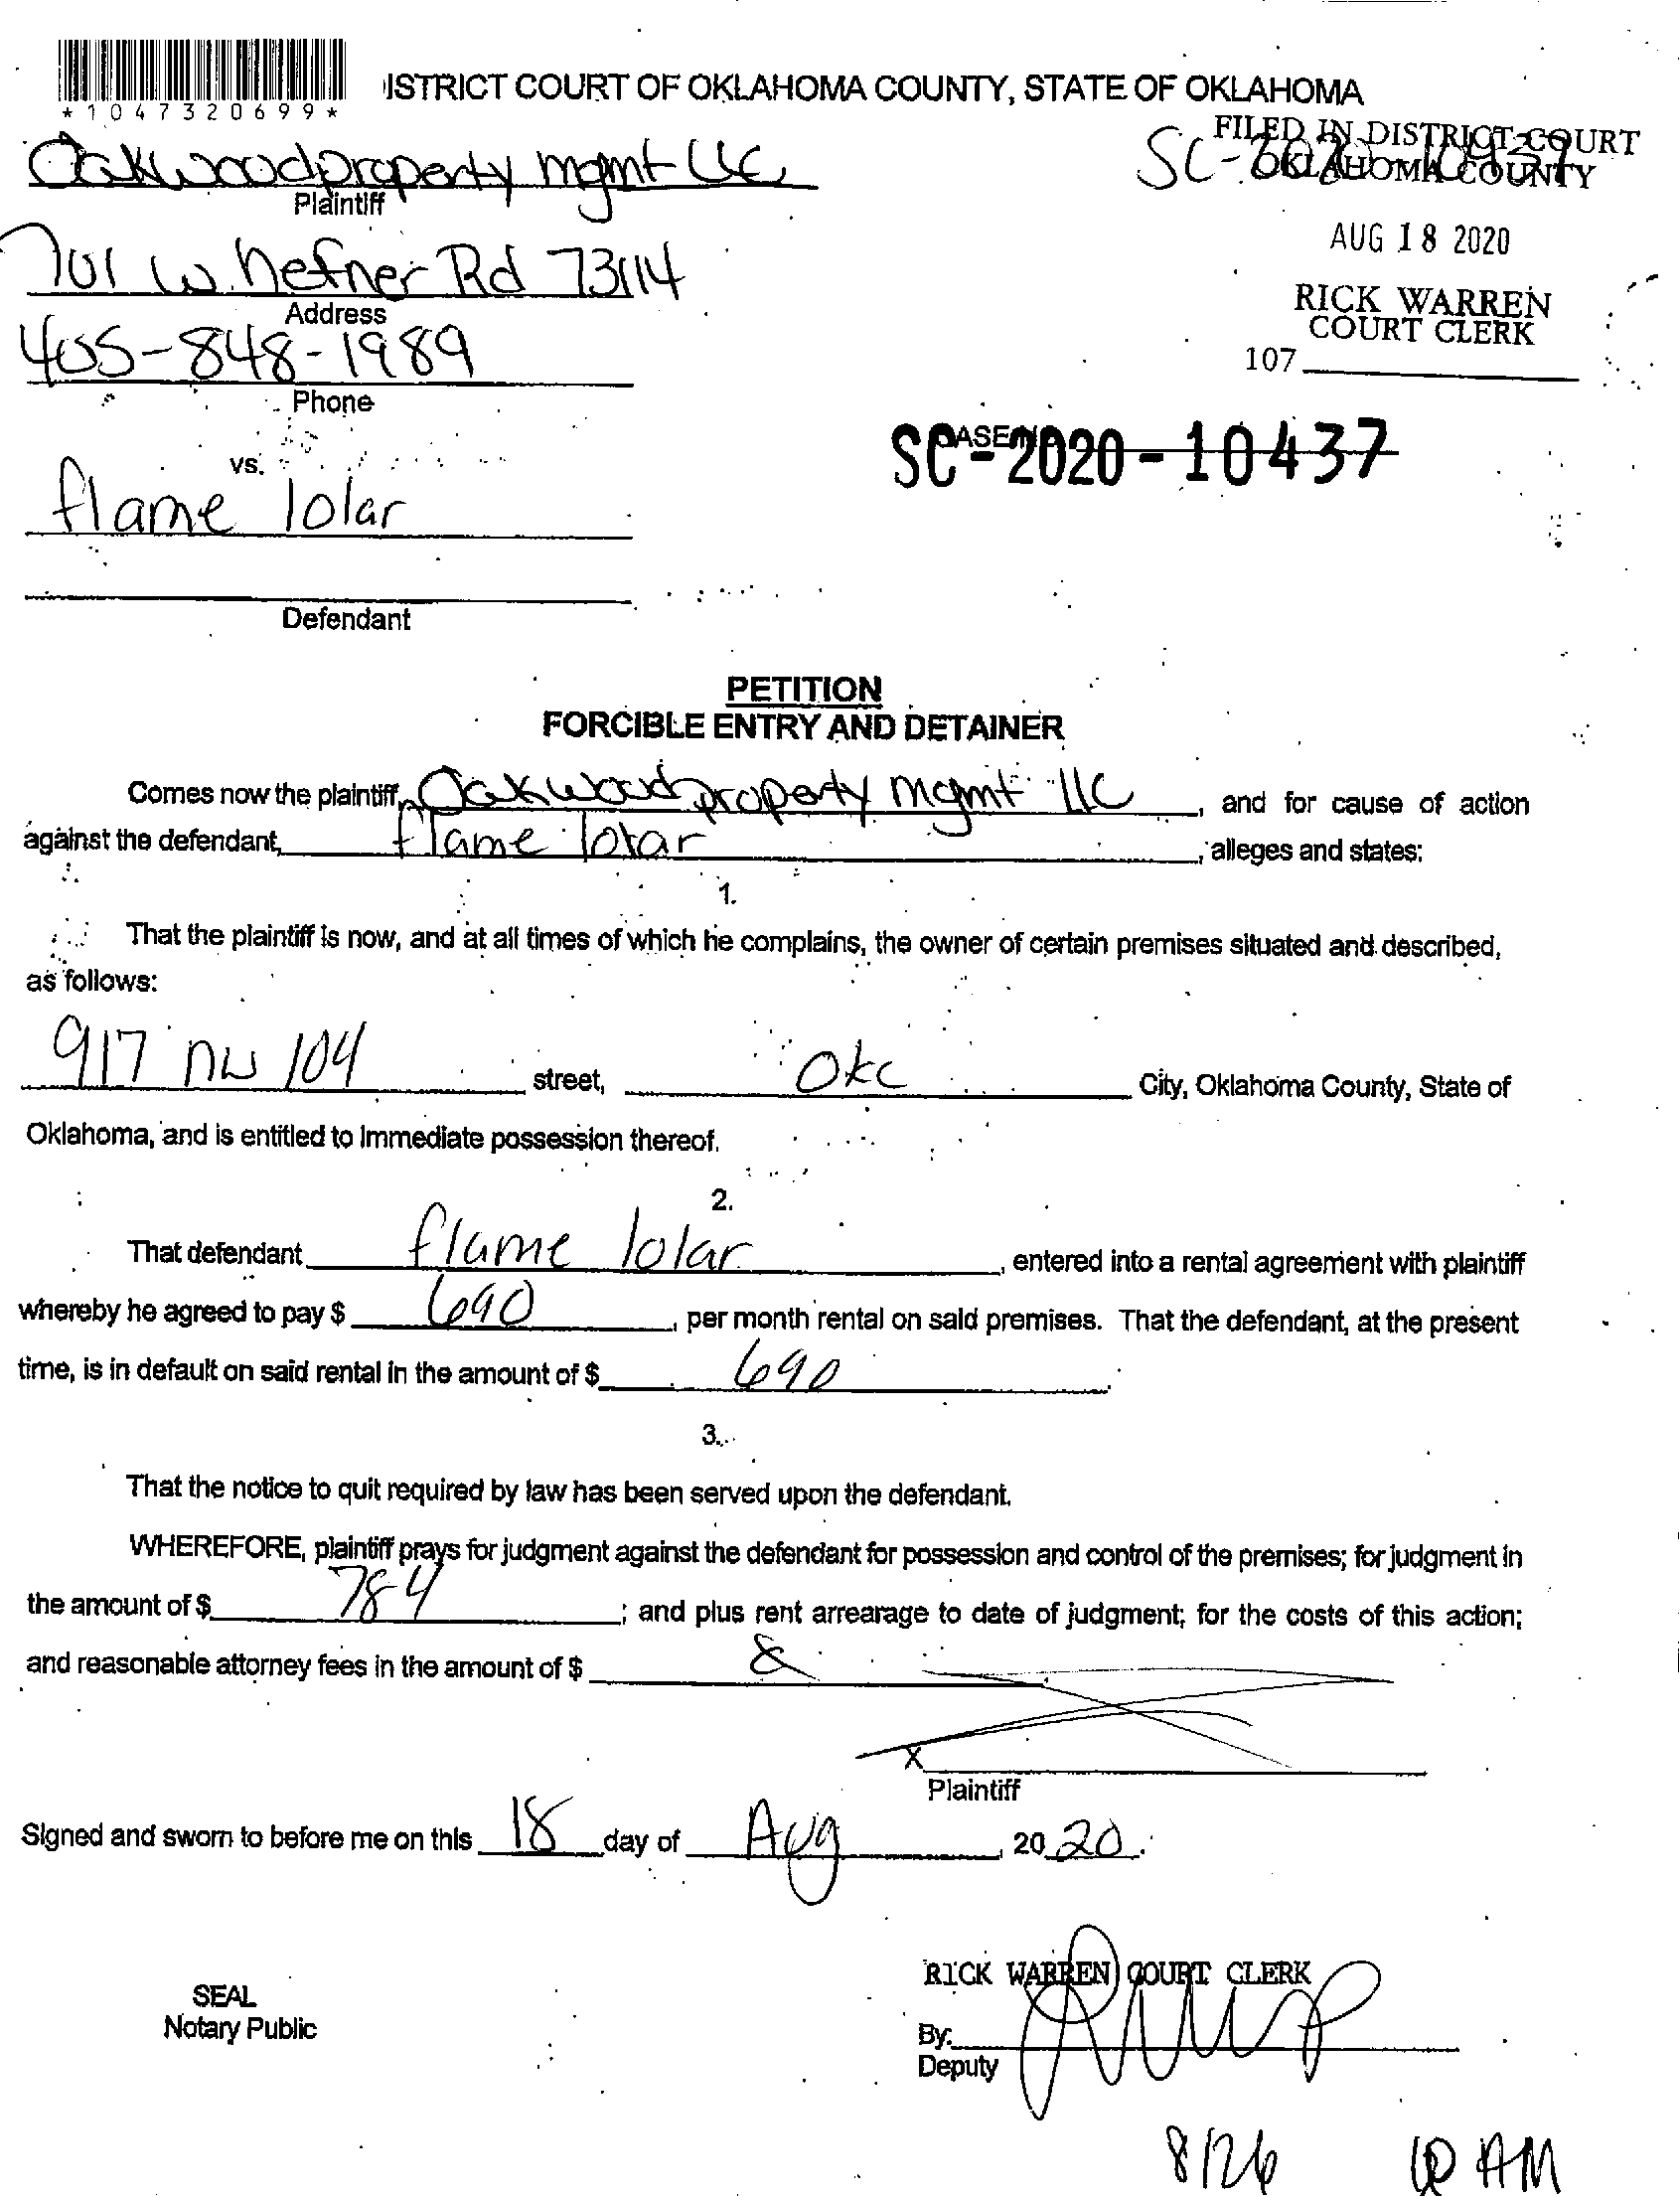 ISTRICT COURT OF OKLAHOMA COUNTY, STATE OF OKLAHOMA
*1047320699*
FILED IN DISTRICT COURT
OKLAHOMA COUNTY
Oakwood property mgmt LLC
Plaintiff
AUG 18 2020
701 W. hefner Rd 73114
Address
RICK WARREN
COURT CLERK
107
405-848-1989
Phone
SC-2020-10437
vs.
flame lolar
Defendant
PETITION
FORCIBLE ENTRY AND DETAINER
Comes now the plaintiff, Oakwood property mgmt llc, and for cause of action
against the defendant, flame lolar, alleges and states:
1.
That the plaintiff is now, and at all times of which he complains, the owner of certain premises situated and described,
as follows:
917 nw 104 street, Okc City, Oklahoma County, State of
Oklahoma, and is entitled to immediate possession thereof.
2.
That defendant flame lolar, entered into a rental agreement with plaintiff
whereby he agreed to pay $ 690, per month rental on said premises. That the defendant, at the present
time, is in default on said rental in the amount of $ 690.
3.
That the notice to quit required by law has been served upon the defendant.
WHEREFORE, plaintiff prays for judgment against the defendant for possession and control of the premises; for judgment in
the amount of $ 784; and plus rent arrearage to date of judgment; for the costs of this action;
and reasonable attorney fees in the amount of $
X
Plaintiff
Signed and sworn to before me on this 18 day of Aug, 20 20.
RICK WARREN COURT CLERK
SEAL
Notary Public
By:
Deputy
8/26 10 AM